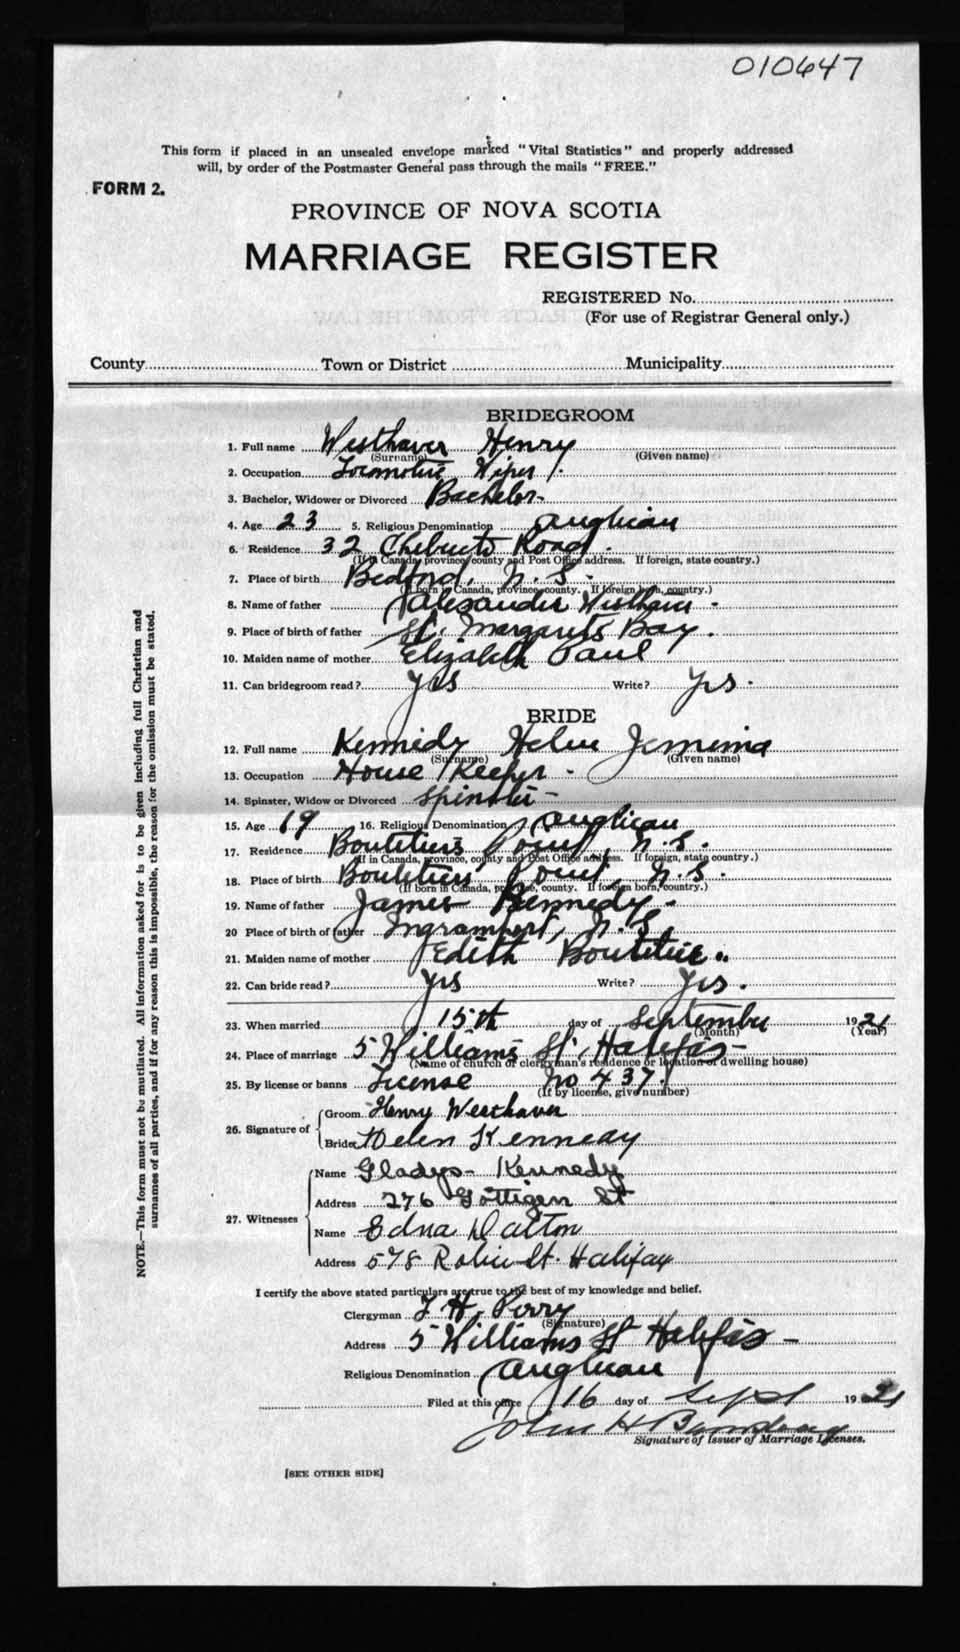 010647
This form if placed in an unsealed envelope marked "Vital Statistics" and properly addressed
will, by order of the Postmaster General pass through the mails "FREE."
FORM 2.
PROVINCE OF NOVA SCOTIA
MARRIAGE REGISTER
REGISTERED No.
(For use of Registrar General only.)
County Town or District Municipality
BRIDEGROOM
1. Full name Westhaver Henry
(Surname) (Given name)
2. Occupation Locomotive Wiper
3. Bachelor, Widower or Divorced Bachelor
4. Age 23 5. Religious Denomination Anglican
6. Residence 32 Chebucto Road.
(If in Canada, province, county and Post Office address. If foreign, state country.)
7. Place of birth Bedford, N.S.
(If born in Canada, province, county. If foreign born, country.)
8. Name of father Alexander Westhaver
9. Place of birth of father St. Margarets Bay.
10. Maiden name of mother Elizabeth Paul
11. Can bridegroom read? Yes Write? Yes.
BRIDE
12. Full name Kennedy Helen Jemima
(Surname) (Given name)
13. Occupation House Keeper
14. Spinster, Widow or Divorced Spinster
15. Age 19 16. Religious Denomination Anglican
17. Residence Boutiliers Point, N.S.
(If in Canada, province, county and Post Office address. If foreign, state country.)
18. Place of birth Boutiliers Point, N.S.
(If born in Canada, province, county. If foreign born, country.)
19. Name of father James Kennedy
20 Place of birth of father Ingramport, N.S.
21. Maiden name of mother Edith Boutilier
22. Can bride read? Yes Write? Yes.
23. When married 15th day of September 1921
(Month) (Year)
24. Place of marriage 5 Williams St., Halifax
(Name of church or clergyman's residence or location of dwelling house)
25. By license or banns License No 437
(If by license, give number)
26. Signature of Groom Henry Westhaver
Bride Helen Kennedy
27. Witnesses Name Gladys Kennedy
Address 276 Gottigen St
Name Edna Dalton
Address 578 Robie St. Halifax
I certify the above stated particulars are true to the best of my knowledge and belief.
Clergyman T. H. Perry
(Signature)
Address 5 Williams St Halifax
Religious Denomination Anglican
Filed at this office 16 day of Sept 1921
John H
Signature of Issuer of Marriage Licenses.
[SEE OTHER SIDE]
NOTE.—This form must not be mutilated. All information asked for is to be given including full Christian and
surnames of all parties, and if for any reason this is impossible, the reason for the omission must be stated.